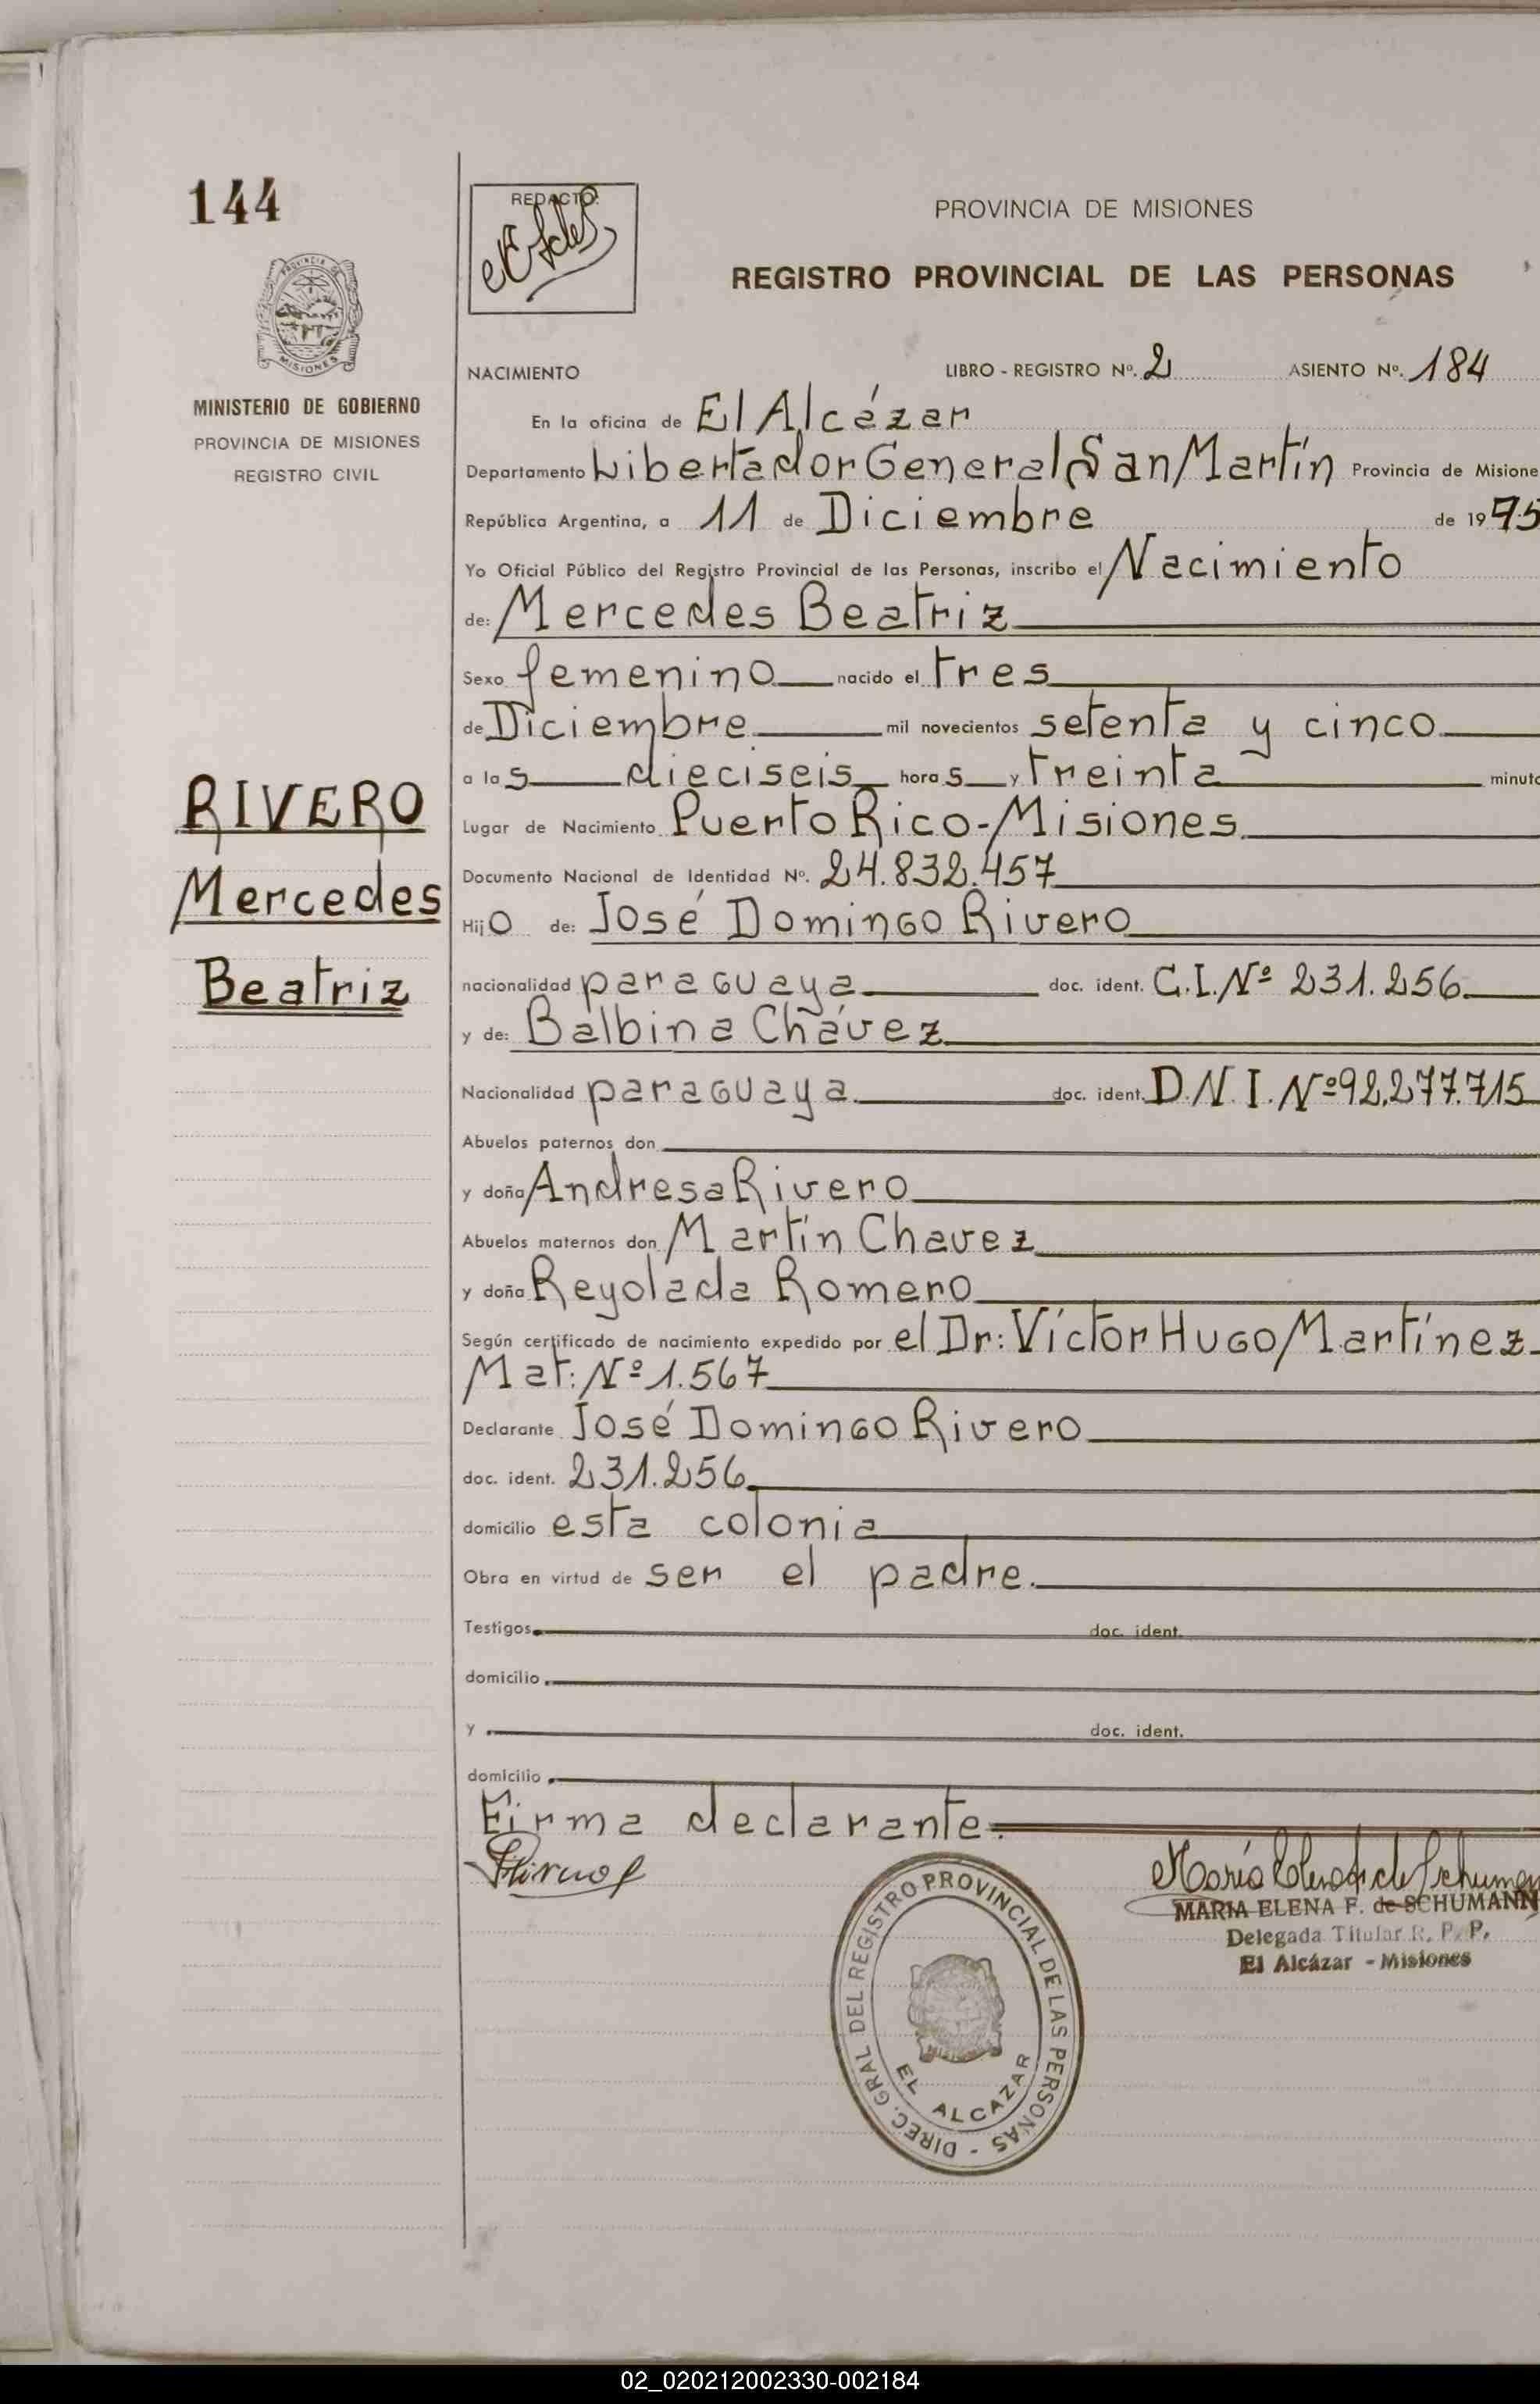 144
REDACTO:
PROVINCIA DE MISIONES
REGISTRO PROVINCIAL DE LAS PERSONAS
PROVINCIA DE
MISIONES
MINISTERIO DE GOBIERNO
PROVINCIA DE MISIONES
REGISTRO CIVIL
NACIMIENTO LIBRO - REGISTRO Nº. 2 ASIENTO Nº. 184
En la oficina de El Alcázar
Departamento Libertador General San Martín Provincia de Misione
República Argentina, a 11 de Diciembre de 1975
Yo Oficial Público del Registro Provincial de las Personas, inscribo el Nacimiento
de: Mercedes Beatriz
Sexo femenino nacido el tres
de Diciembre mil novecientos setenta y cinco
a las dieciseis horas y treinta minuto
Lugar de Nacimiento Puerto Rico-Misiones
Documento Nacional de Identidad Nº. 24.832.457
Hijo de: José Domingo Rivero
nacionalidad paraguaya doc. ident. C.I.Nº 231.256
y de: Balbina Chávez
Nacionalidad paraguaya doc. ident. D.N.I.Nº92.277.715
Abuelos paternos don
y doña Andresa Rivero
Abuelos maternos don Martín Chavez
y doña Reyolada Romero
Según certificado de nacimiento expedido por el Dr: Víctor Hugo Martínez
Mat: Nº 1.567
Declarante José Domingo Rivero
doc. ident. 231.256
domicilio esta colonia
Obra en virtud de ser el padre.
Testigos doc. ident.
domicilio
y doc. ident.
domicilio
Firma declarante.
RIVERO
Mercedes
Beatriz
DIREC. GRAL DEL REGISTRO PROVINCIAL DE LAS PERSONAS -
EL ALCAZAR
MARIA ELENA F. de SCHUMANN
Delegada Titular R. P. P.
El Alcázar - Misiones
02_020212002330-002184